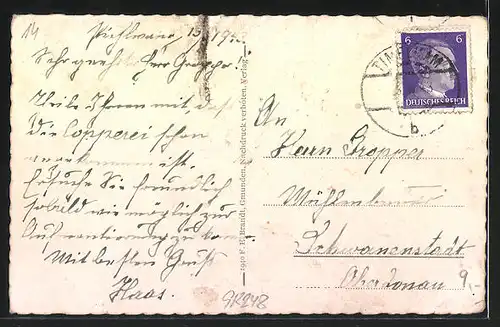 14
Sehr geehrter Herr Gropper!
Teile Ihnen mit, daß
die Copperei schon
angekommen ist.
Ersuche Sie freundlich
sobald wie möglich zur
zu
Mit besten Gruß
Haas.
1940 F. E. Brandt, Gmunden, Nachdruck verboten, Verlag
6 6
DEUTSCHES REICH
b
An
Herrn Gropper
Mühlenbauer
Schwanenstadt
Oberdonau
9,-